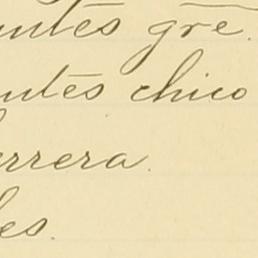 untes gre.
untes chico
errera.
les.